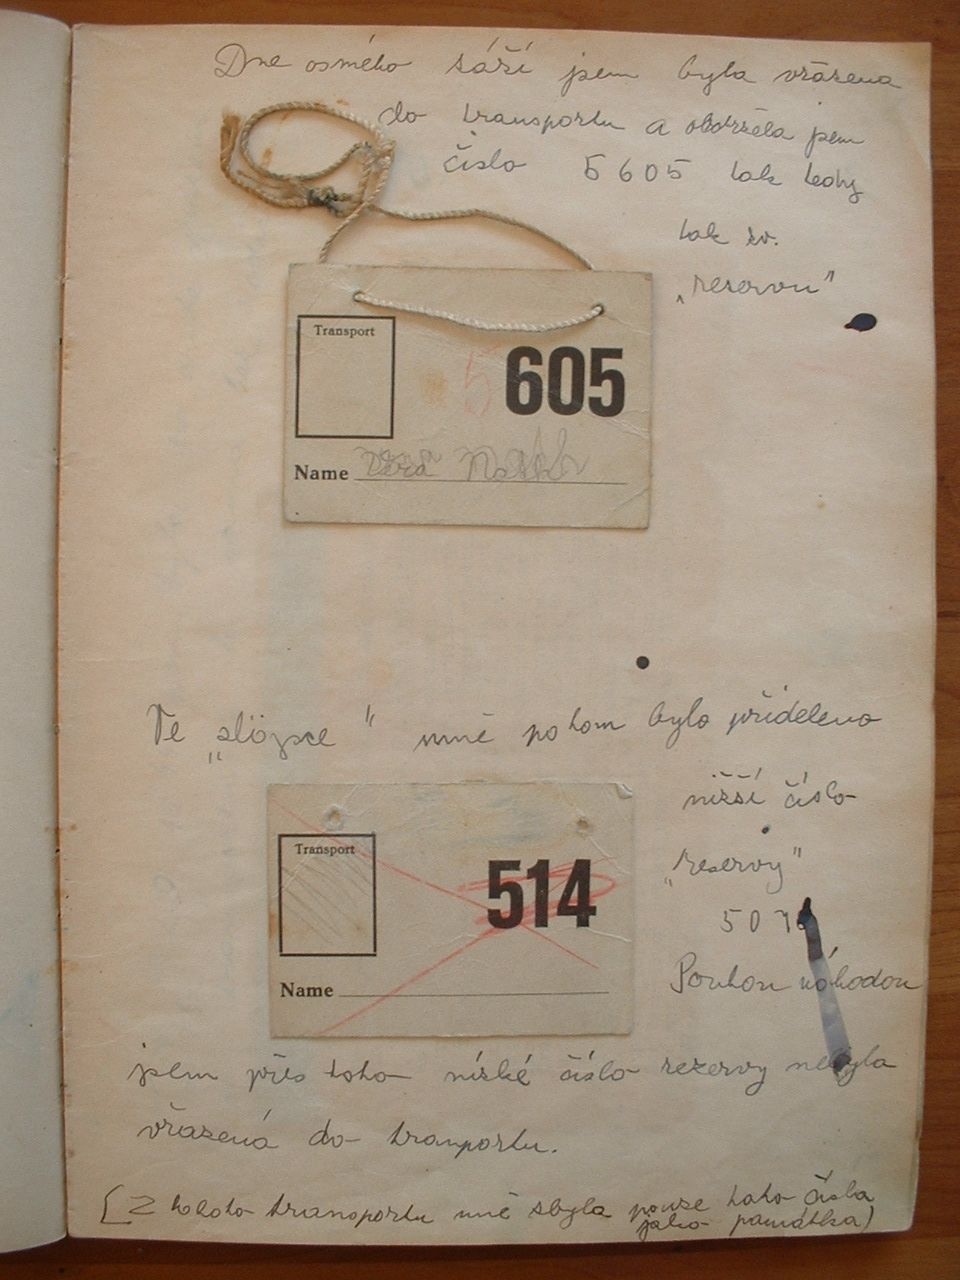 Dne osmého záží jsem byla vřazena
do transportu a obdržela jsem
číslo 5605 tak tedy
tak zv.
„rezervu"
Transport
5 605
Name Věra
Ve „slojsce" mně pohom bylo přiděleno
nižší číslo
Transport
514
Name
„reservy"
507
Pouhou náhodou
jsem přes toho nízké číslo rezervy nebyla
vřazená do tranportu.
(Z tohoto transportu mně zbyla pouze tato čísla
jako památka)